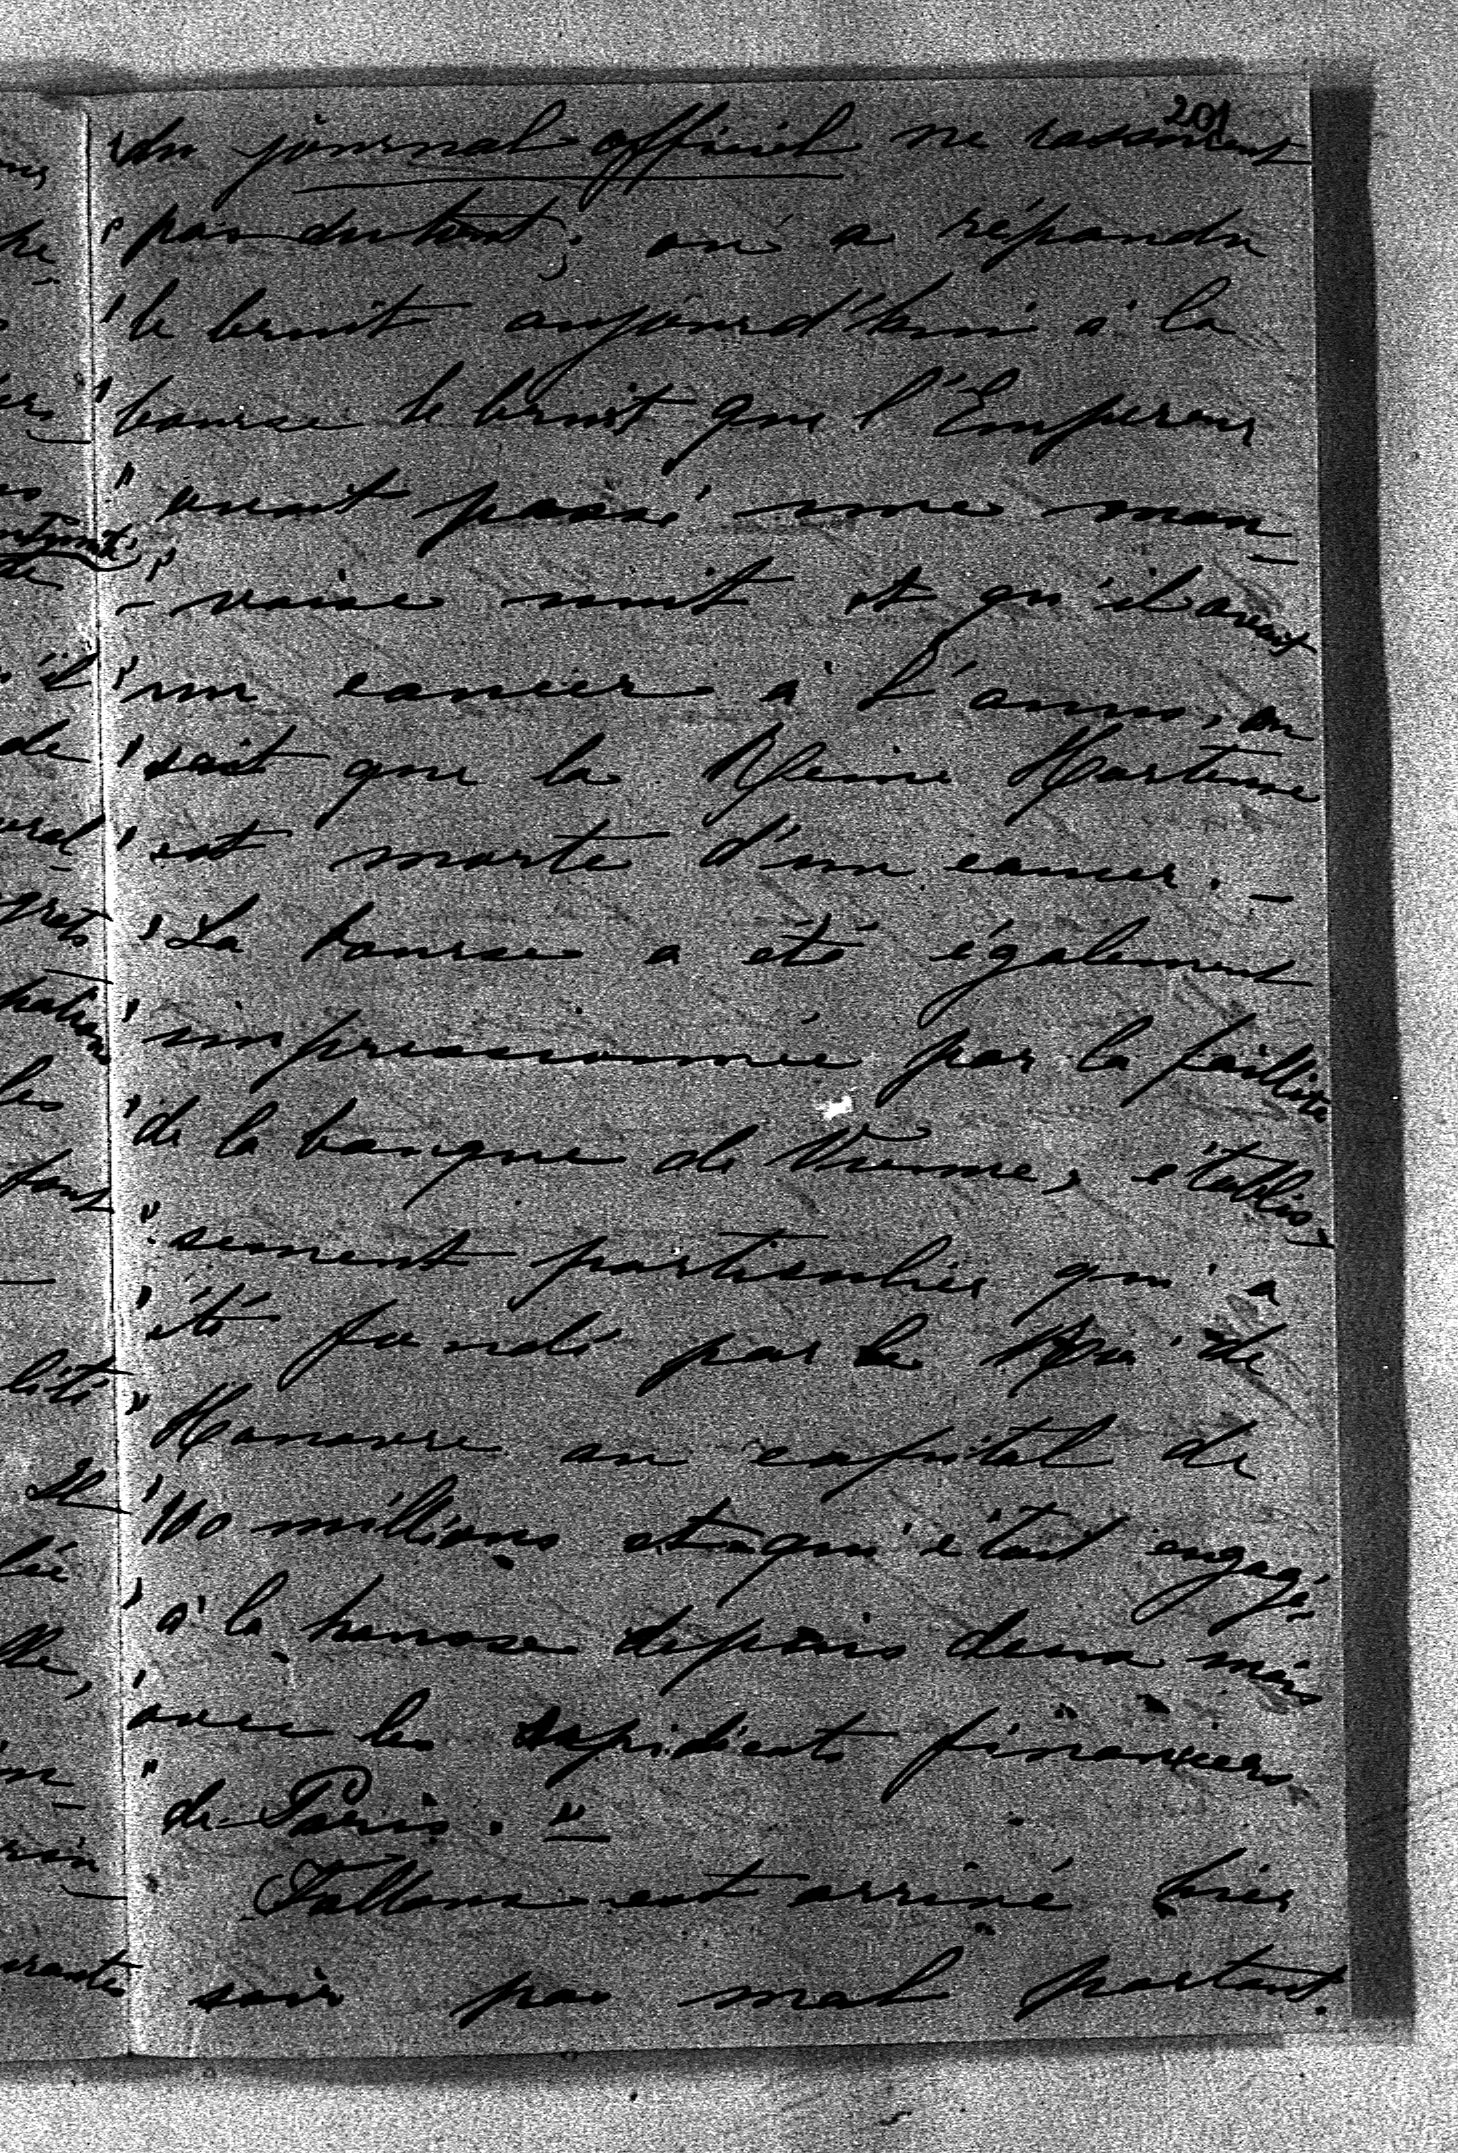 201
"du journal officiel ne rassurent
"pas du tout; on a répandu
"le bruit aujourd'hui à la
"bourse le bruit que l'Empereur
"avait passé une mau-
"-vaise nuit et qu'il avait
"un cancer à l'anus, on
"sait que la Reine Hortense
"est morte d'un cancer. -
"La bourse a été également
"impressionnée par la faillite
"de la banque de Vienne, établis-
"sement particulier qui a
"été fondé par le Roi de
"Hanovre au capital de
"100 millions et qui était engagé
"à la hausse depuis deux mois
"avec les expédients financiers
"de Paris. "
est arrivé hier
soir pas mal portant.